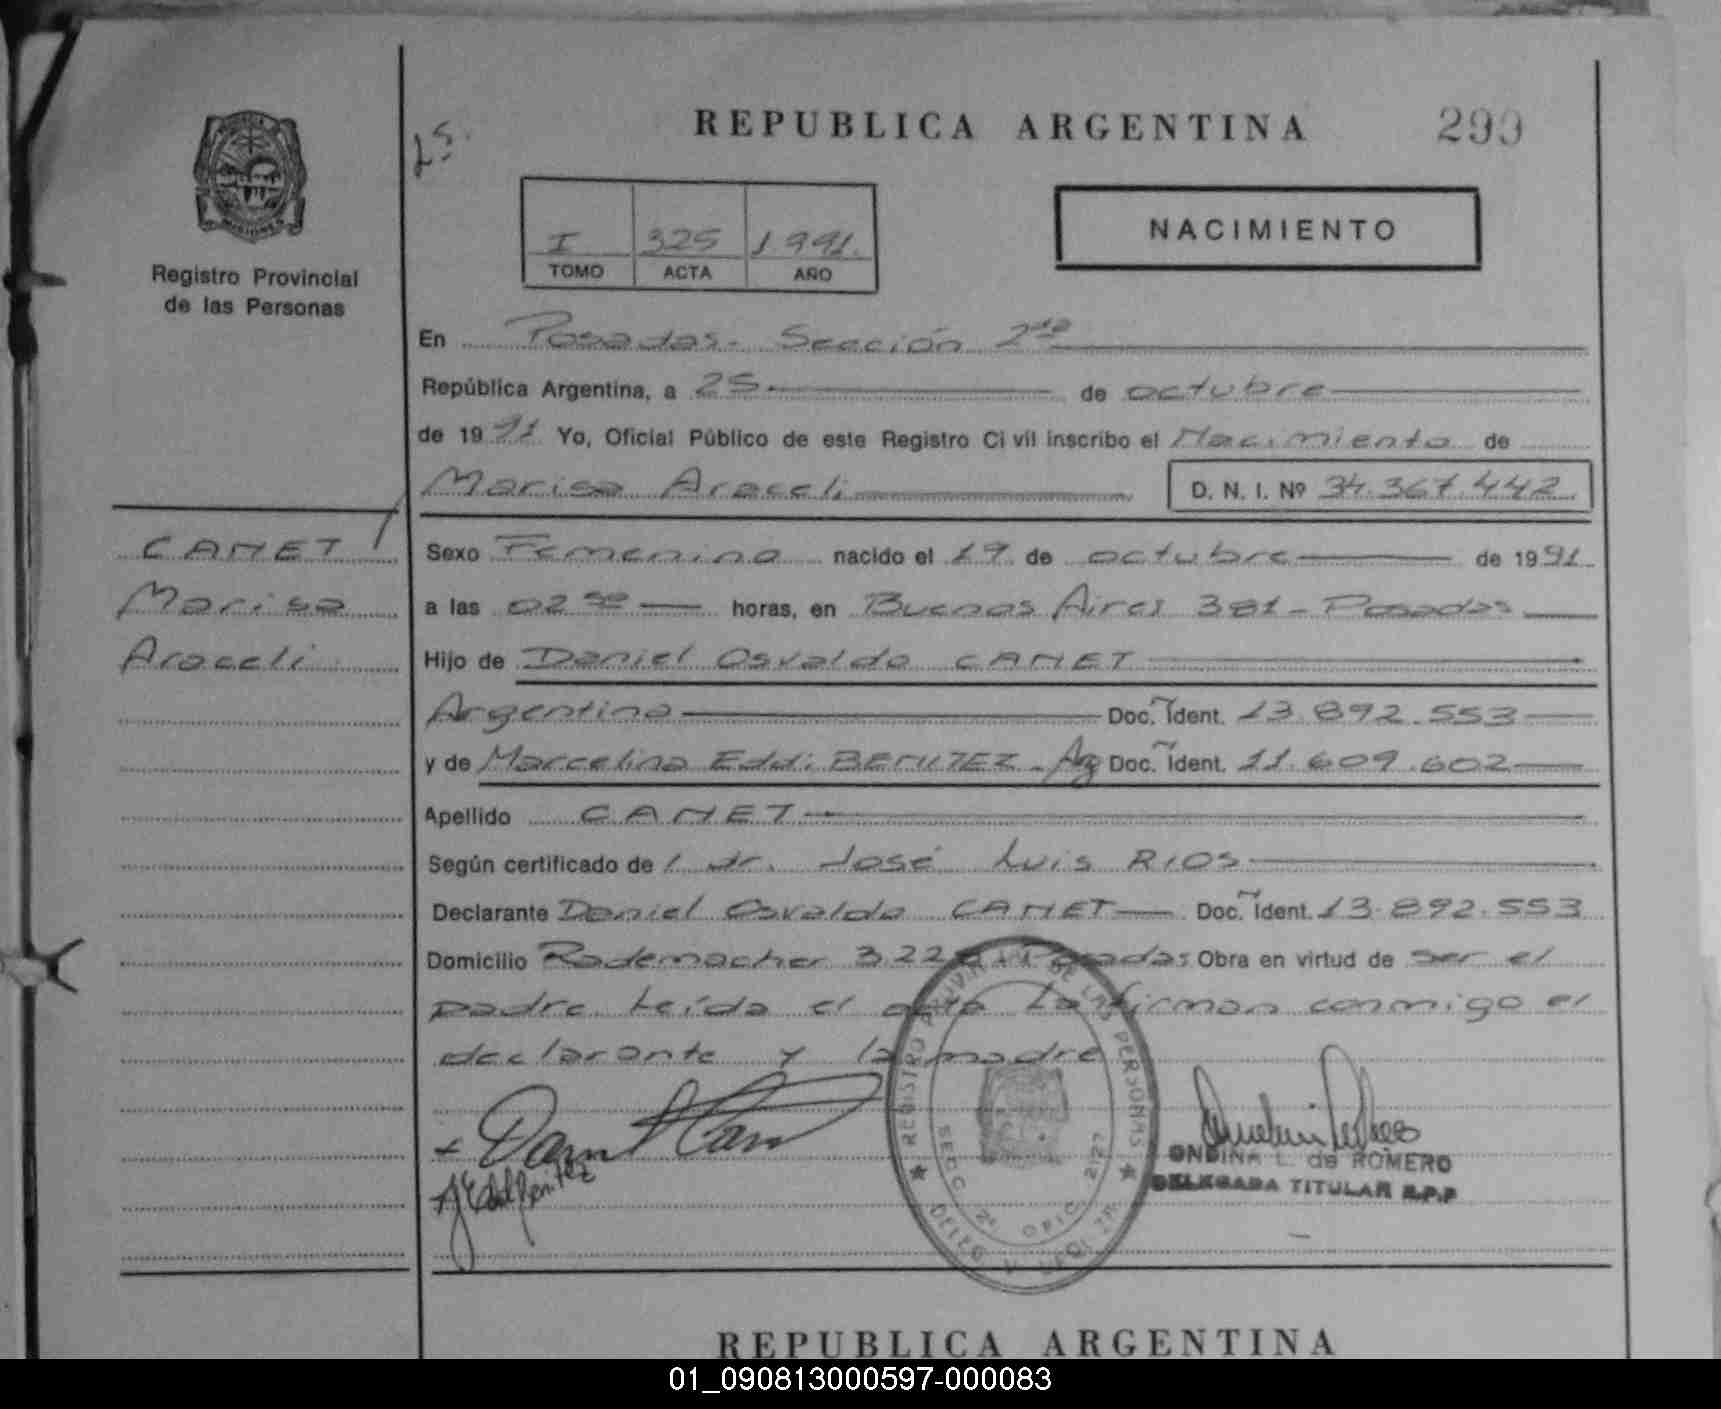 REPUBLICA ARGENTINA 299
I 325 1991.
TOMO ACTA AÑO
NACIMIENTO
MISIONES
Registro Provincial
de las Personas
En Posadas. Sección 2da
República Argentina, a 25 de octubre
de 1991 Yo, Oficial Público de este Registro Civil inscribo el Nacimiento de
Marisa Araceli D. N. I. Nº 34.367.442
CANET
Marisa
Araceli
Sexo Femenino nacido el 19 de octubre de 1991
a las 02 horas, en Buenos Aires 381 - Posadas
Hijo de Daniel Osvaldo CANET
Argentino Doc. Ident. 13.892.553
y de Marcelina Eddi BENITEZ - Arg Doc. Ident. 11.609.602
Apellido CANET
Según certificado de / dr. José Luis RIOS
Declarante Daniel Osvaldo CANET Doc. Ident. 13.892.553
Domicilio Rademacher 322 Posadas Obra en virtud de ser el
padre. Leída el acta La firman conmigo el
declarante y la madre
REGISTRO PROVINCIAL DE LAS PERSONAS
SECC. 2ª OFIC. 2127
ONDINA L. de ROMERO
DELEGADA TITULAR R.P.P
REPUBLICA ARGENTINA
01_090813000597-000083